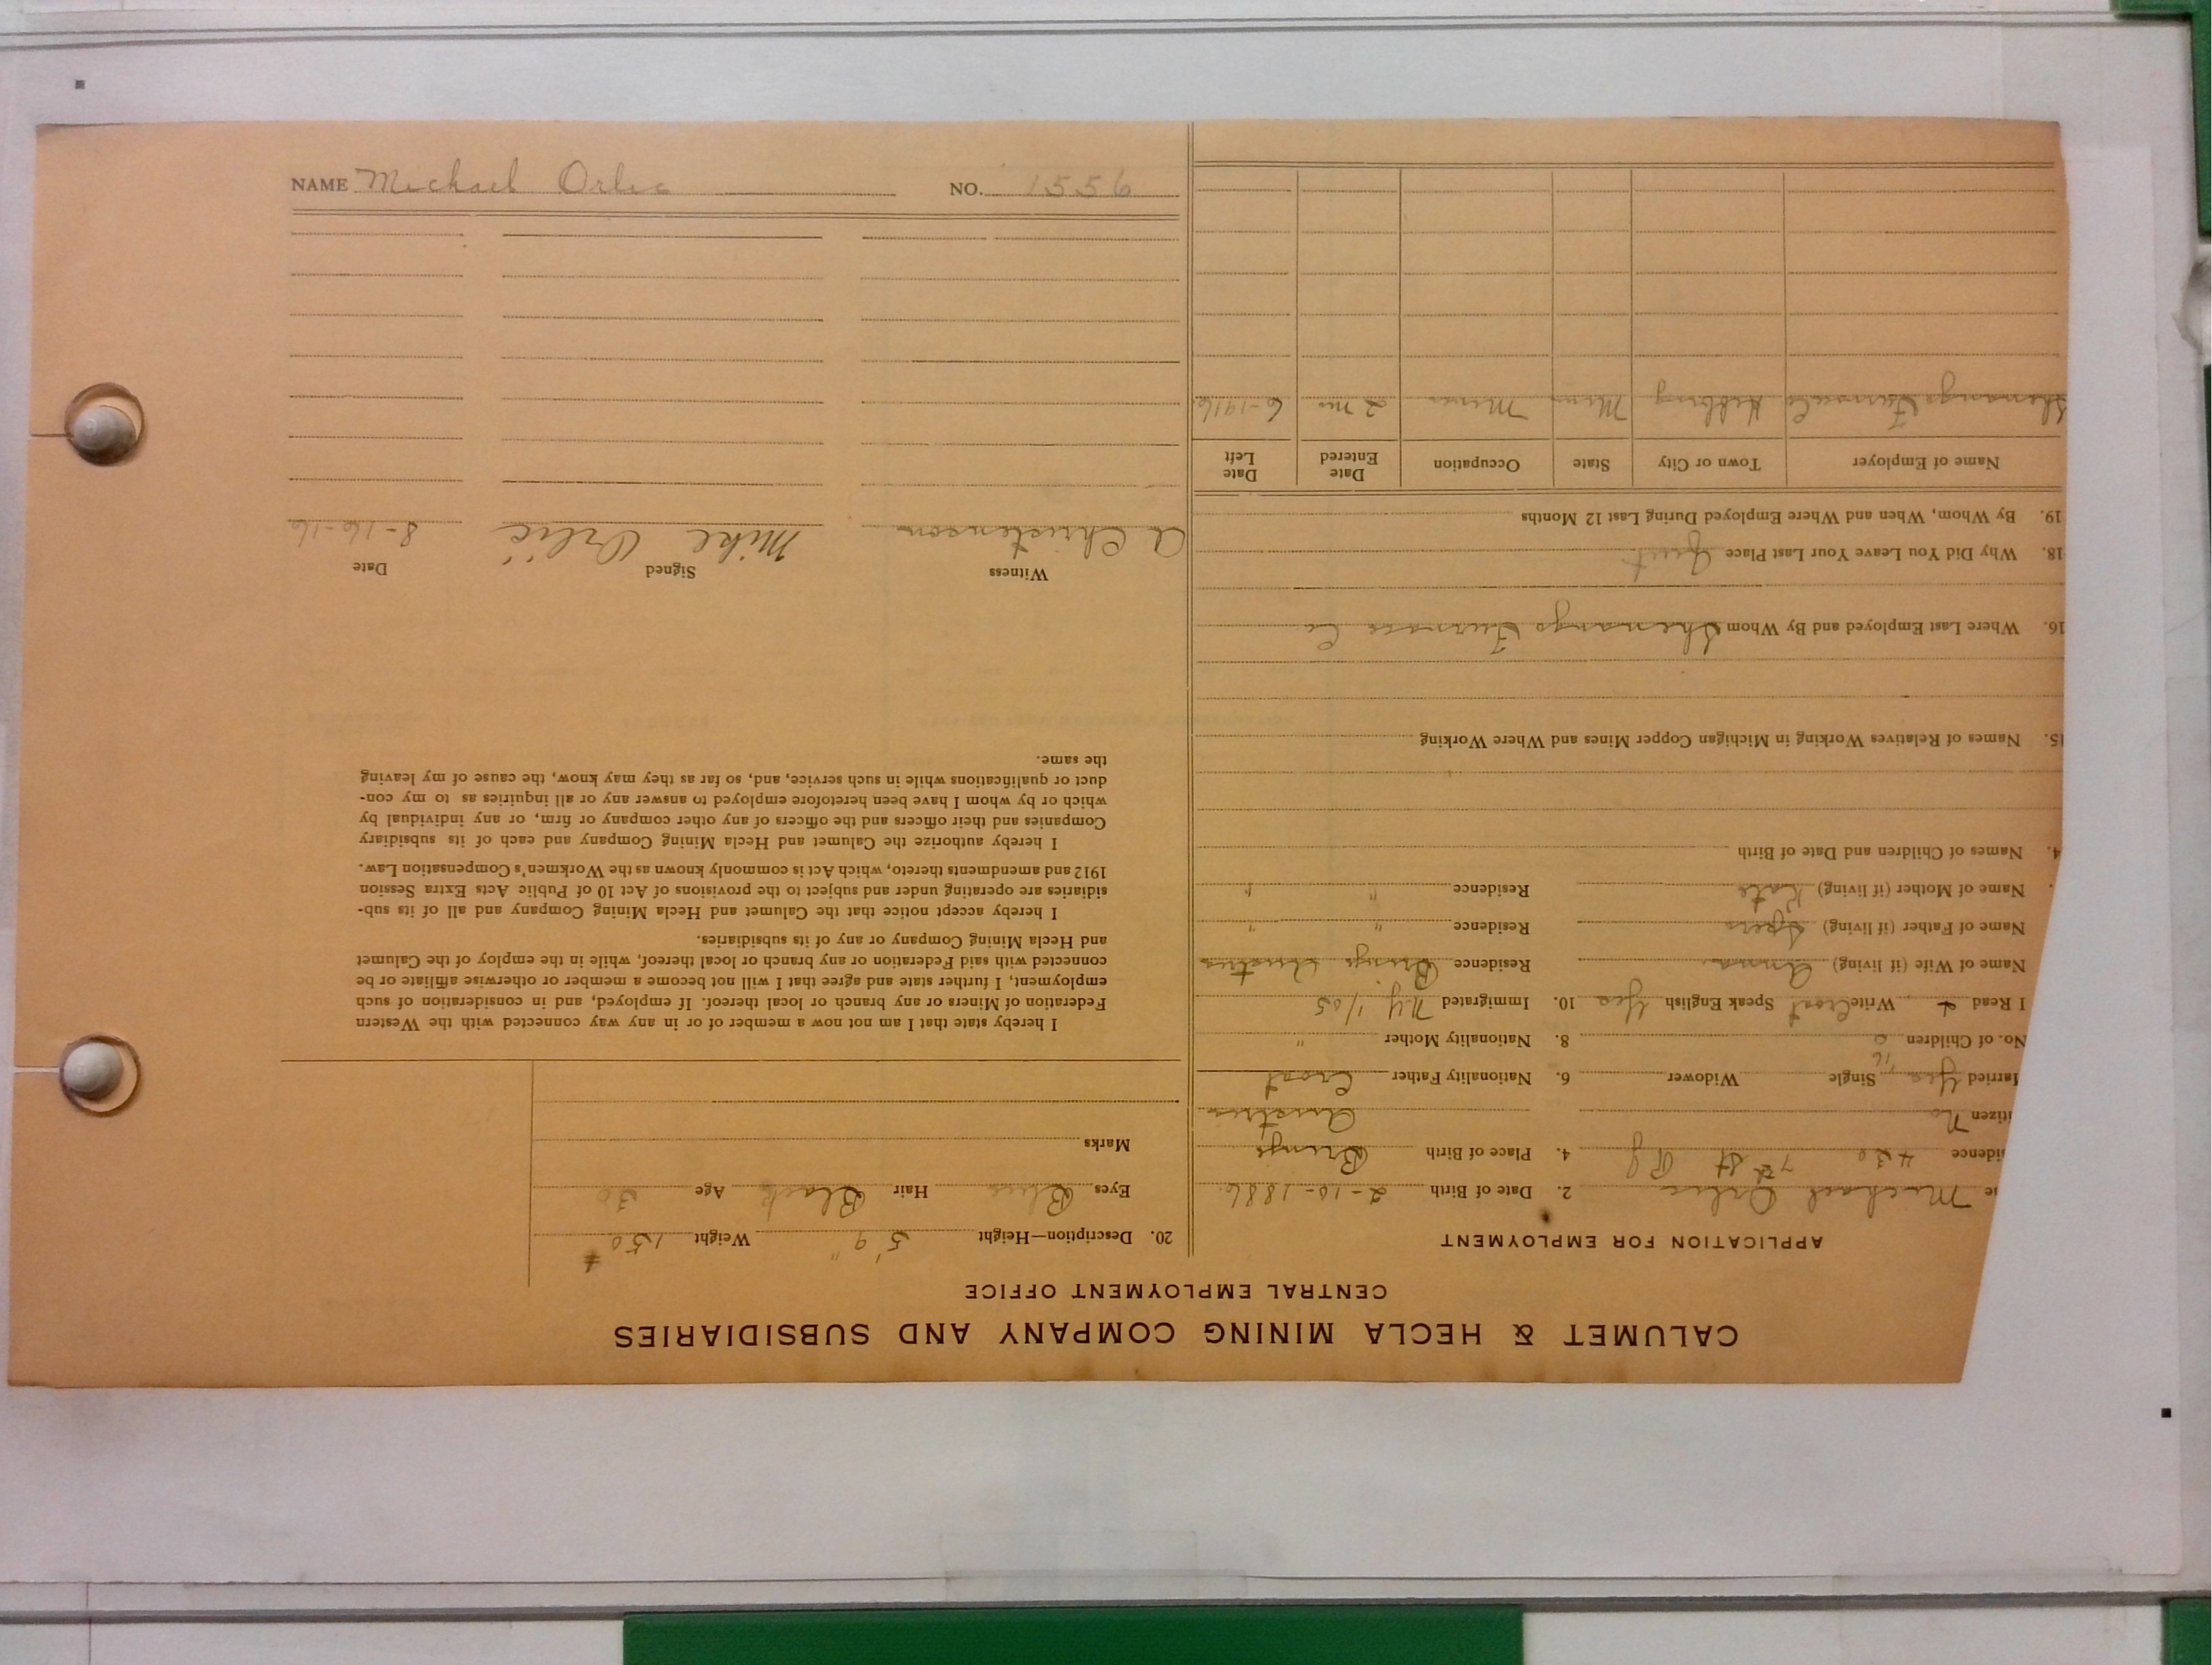 NAME Michael Orlic NO. 1556
CALUMET & HECLA MINING COMPANY AND SUBSIDIARIES
CENTRAL EMPLOYMENT OFFICE
APPLICATION FOR EMPLOYMENT
me Michael Orlic 2. Date of Birth 2-10-1886
sidence 430 7th St 4. Place of Birth Brinje
itizen no Austria
Married Yes 16 Single Widower 6. Nationality Father Croat
No. of Children 0 8. Nationality Mother "
I Read + Write Croat Speak English Yes 10. Immigrated N.Y. 1/05
Name of Wife (if living) Anna Residence Brinje Austria
Name of Father (if living) Residence " "
Name of Mother (if living) Kate Residence " "
4. Names of Children and Date of Birth
15. Names of Relatives Working in Michigan Copper Mines and Where Working
16. Where Last Employed and By Whom Shenango Furnace Co
18. Why Did You Leave Your Last Place Quit
19. By Whom, When and Where Employed During Last 12 Months
Name of Employer Town or City State Occupation Date Entered Date Left
Shenango Furnace Hibbing Minn Miner 2 mo 6-1916
20. Description—Height 5' 9" Weight 150 #
Eyes Blue Hair Black Age 30
Marks
I hereby state that I am not now a member of or in any way connected with the Western
Federation of Miners or any branch or local thereof. If employed, and in consideration of such
employment, I further state and agree that I will not become a member or otherwise affiliate or be
connected with said Federation or any branch or local thereof, while in the employ of the Calumet
and Hecla Mining Company or any of its subsidiaries.
I hereby accept notice that the Calumet and Hecla Mining Company and all of its sub-
sidiaries are operating under and subject to the provisions of Act 10 of Public Acts Extra Session
1912 and amendments thereto, which Act is commonly known as the Workmen's Compensation Law.
I hereby authorize the Calumet and Hecla Mining Company and each of its subsidiary
Companies and their officers and the officers of any other company or firm, or any individual by
which or by whom I have been heretofore employed to answer any or all inquiries as to my con-
duct or qualifications while in such service, and, so far as they may know, the cause of my leaving
the same.
Witness Signed Date
A Christenson Mike Orlić 8-16-16